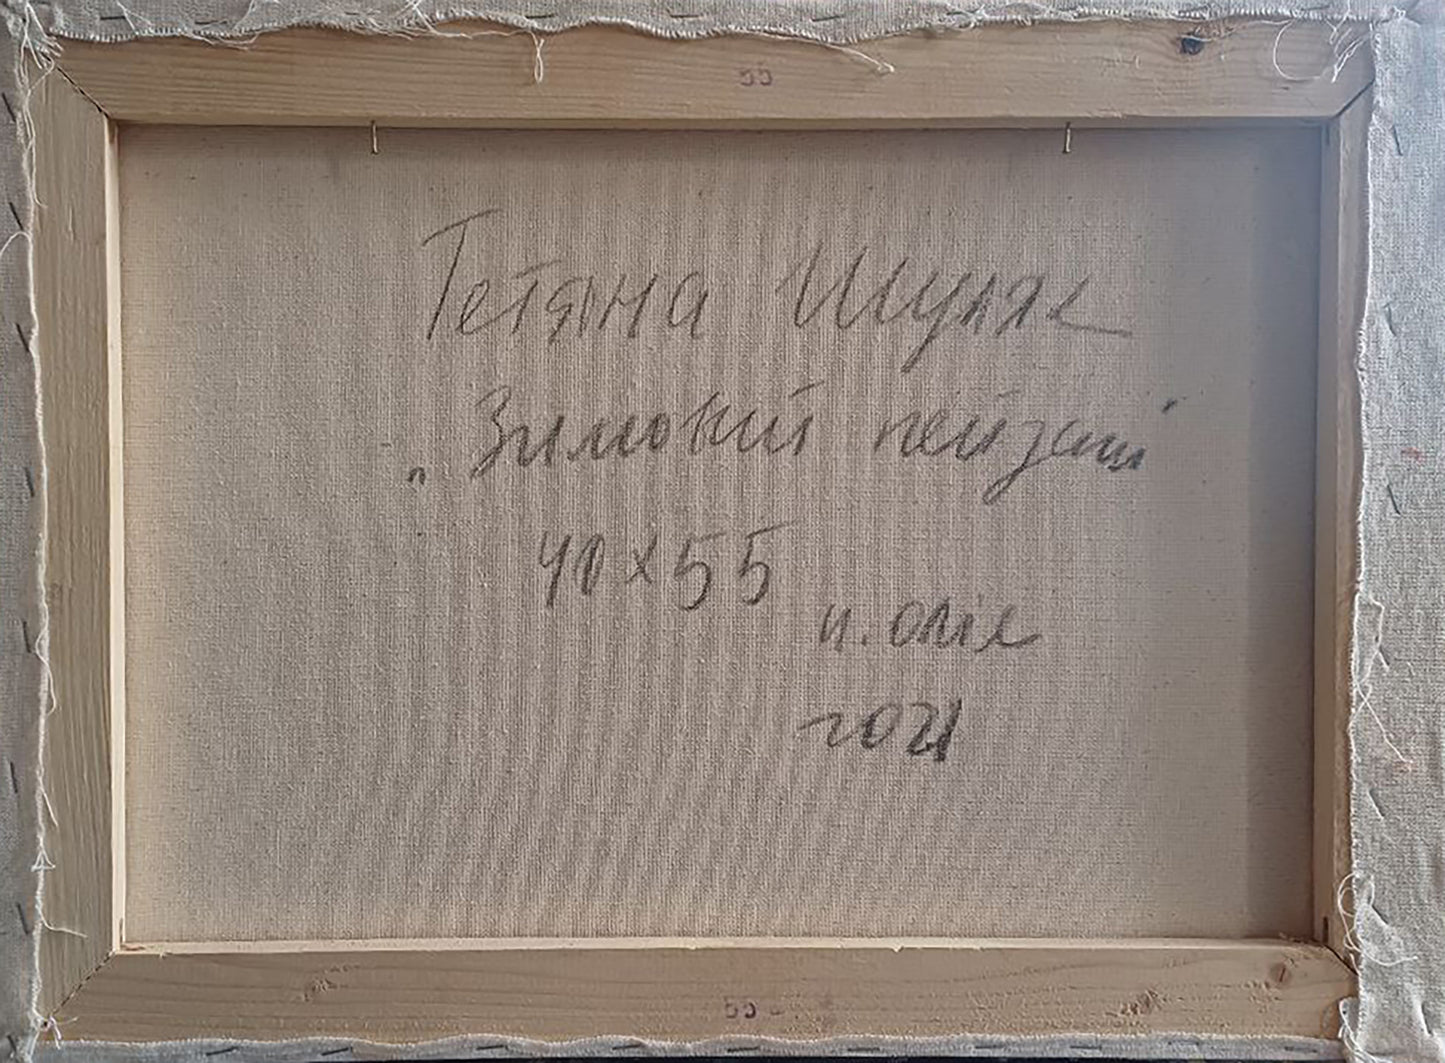 55
Тетяна Шуляк
„Зимовий пейзаж"
40х55
п. олія
2021
55